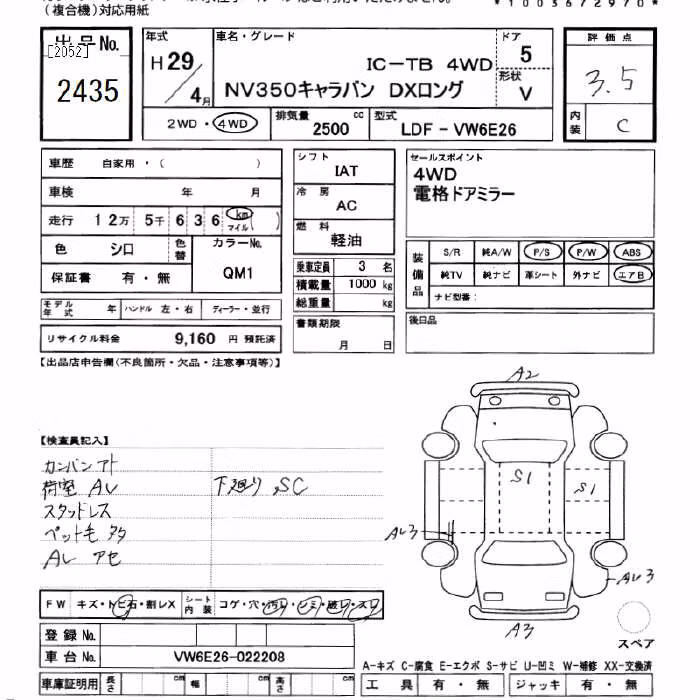 (複合機)対応用紙
*10036729​70*
出品No.
[2052]
2435
年式
H29/4月
車名・グレード
IC-TB 4WD
NV350キャラバン DXロング
ドア
5
形状
V
2WD・4WD
排気量
2500 cc
型式
LDF-VW6E26
評価点
3.5
内装
C
車歴 自家用・( )
車検 年 月
走行 12万 5千 6 3 6 km マイル ( )
色 シロ 色替
カラーNo.
QM1
保証書 有・無
モデル年式 年 ハンドル 左・右 ディーラー・並行
リサイクル料金 9,160 円 預託済
シフト
IAT
冷房
AC
燃料
軽油
乗車定員 3 名
積載量 1000 kg
総重量 kg
書類期限
月 日
セールスポイント
4WD
電格ドアミラー
装備品
S/R 純A/W P/S P/W ABS
純TV 純ナビ 革シート 外ナビ エアB
ナビ型番:
後日品
【出品店申告欄(不良箇所・欠品・注意事項等)】
【検査員記入】
カンバンアト
荷室 AU 下廻り SC
スタッドレス
ペット毛 多タ
AU アセ
A2
S1
S1
AU3
AU3
A3
スペア
FW キズ・トビ石・割レX シート内装 コゲ・穴・汚レ・シミ・破レ・スレ
登録No.
車台No. VW6E26-022208
車庫証明用 長さ cm 幅 cm 高さ cm
A-キズ C-腐食 E-エクボ S-サビ U-凹ミ W-補修 XX-交換済
工具 有・無 ジャッキ 有・無